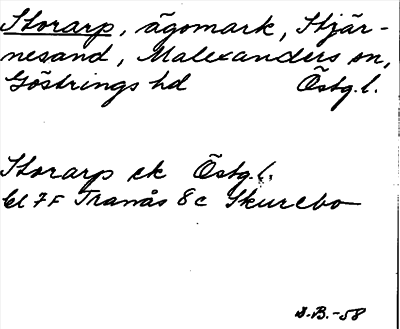 Storarp, ägomark, Stjär-
nesand, Malexanders sn,
Göstrings hd Östg.l.
Storarp ek Östg.l.
bl 7F Tranås 8c Skurebo
S.B.-58